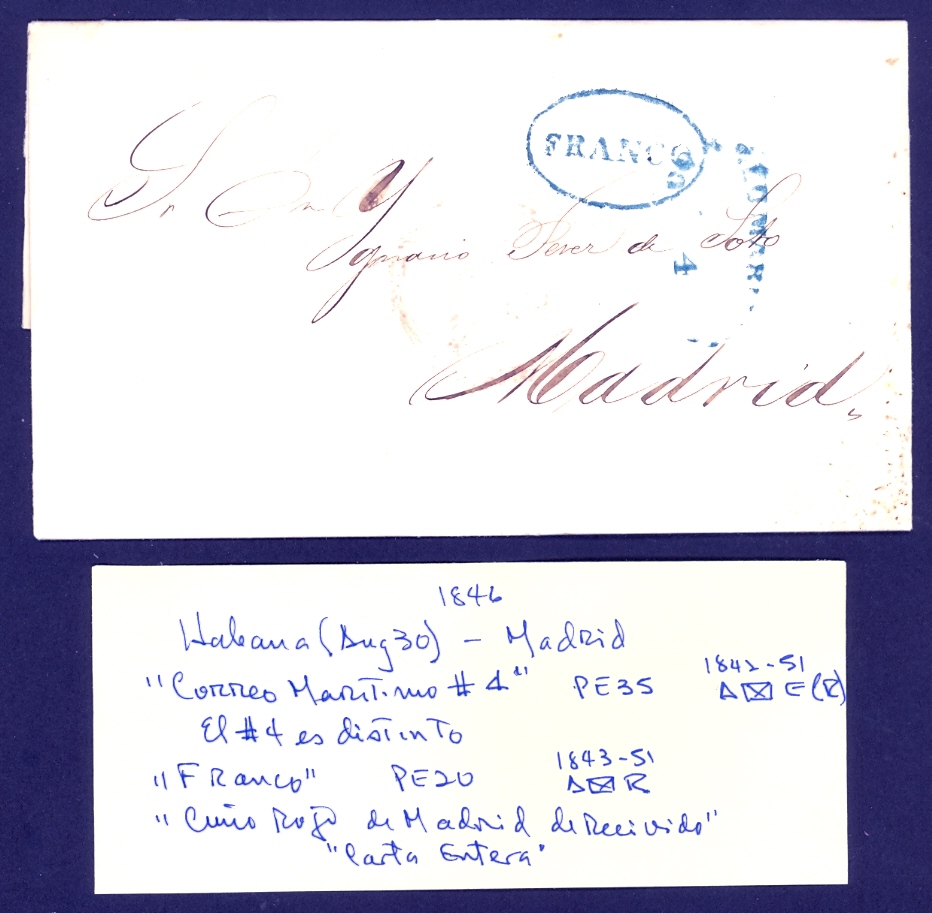 FRANCO
Sr Dn Y
Ygnacio Perez de Soto
4
Madrid
1846
Habana (Aug 30) - Madrid
"Correo Maritimo # 4" PE35 1842-51
El #4 es distinto
"Franco" PE20 1843-51
"Cuño Rojo de Madrid de Recivido"
"Carta Entera"